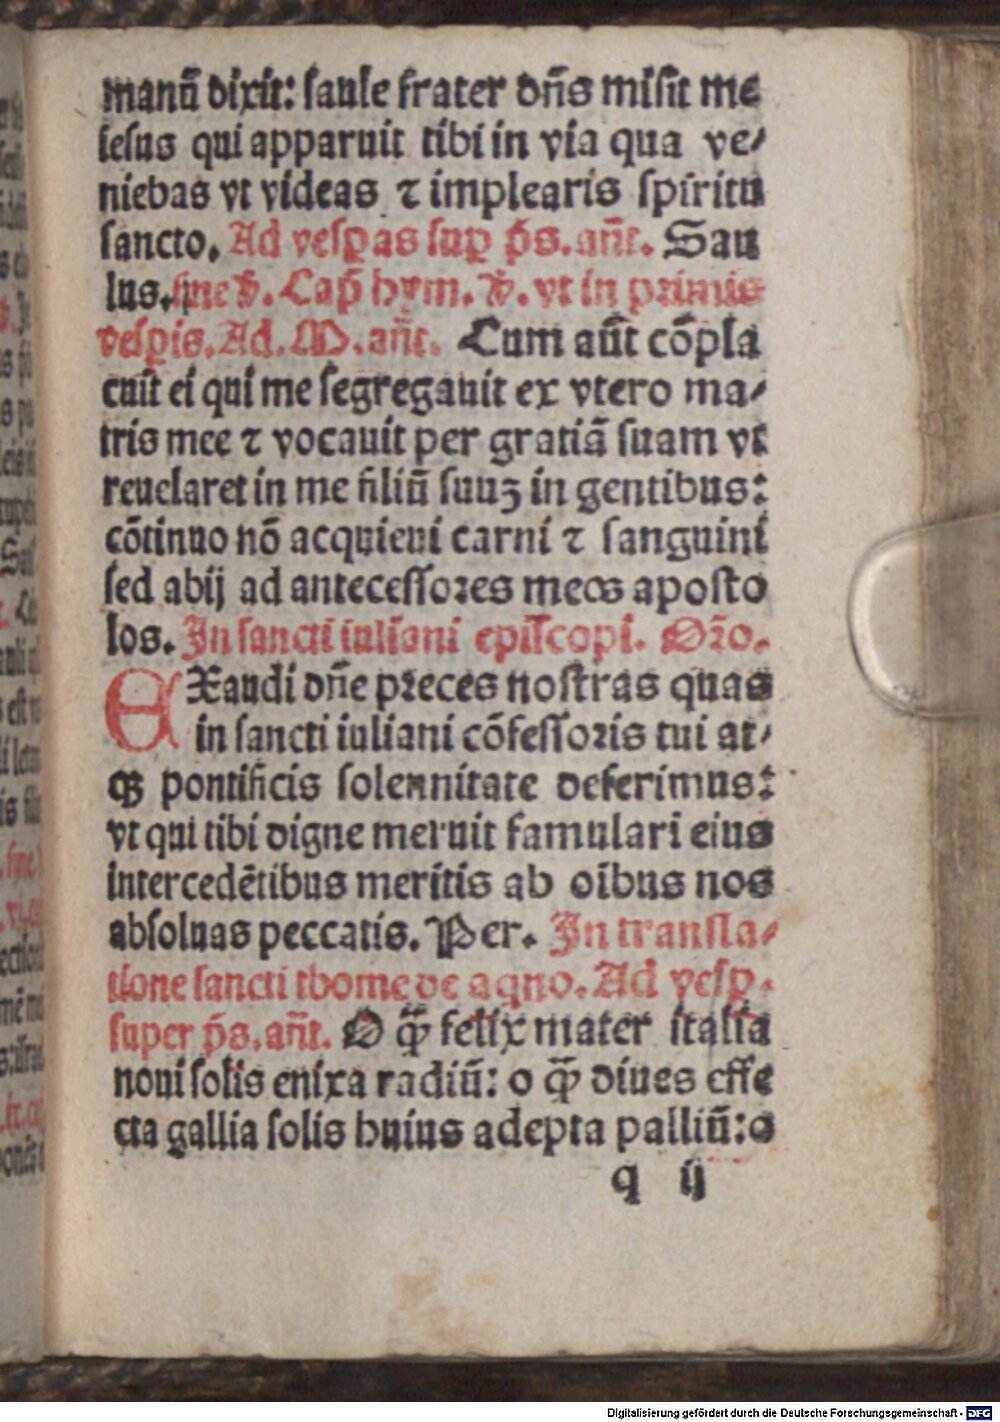 manū dixit: saule frater dn̄s misit me
iesus qui apparuit tibi in via qua ve⸗
niebas vt videas ⁊ implearis spiritu
sancto. Ad vesꝑas suꝑ ps̄. an̄t. Sau
lus. sine Cap̄ hym. ℣. vt in primis
vesꝑis. Ad. M. an̄t. Cum aūt cōpla
cuit ei qui me segregauit ex vtero ma⸗
tris mee ⁊ vocauit per gratiā suam vt
reuelaret in me filiū suuꝫ in gentibus:
cōtinuo nō acquieui carni ⁊ sanguini
sed abij ad antecessores meos aposto
los. In sancti iuliani episcopi. Oro.
EXaudi dn̄e preces nostras quas
in sancti iuliani cōfessoris tui at⸗
qꝫ pontificis solennitate deferimus:
vt qui tibi digne meruit famulari eius
intercedētibus meritis ab oībus nos
absoluas peccatis. Per. In transla⸗
tione sancti thome de aqno. Ad vesꝑ.
super ps̄. an̄t. O qͣ̄ felix mater italia
noui solis enixa radiū: o qͣ̄ diues effe
cta gallia solis huius adepta palliū: o
q ij
Digitalisierung gefördert durch die Deutsche Forschungsgemeinschaft - DFG